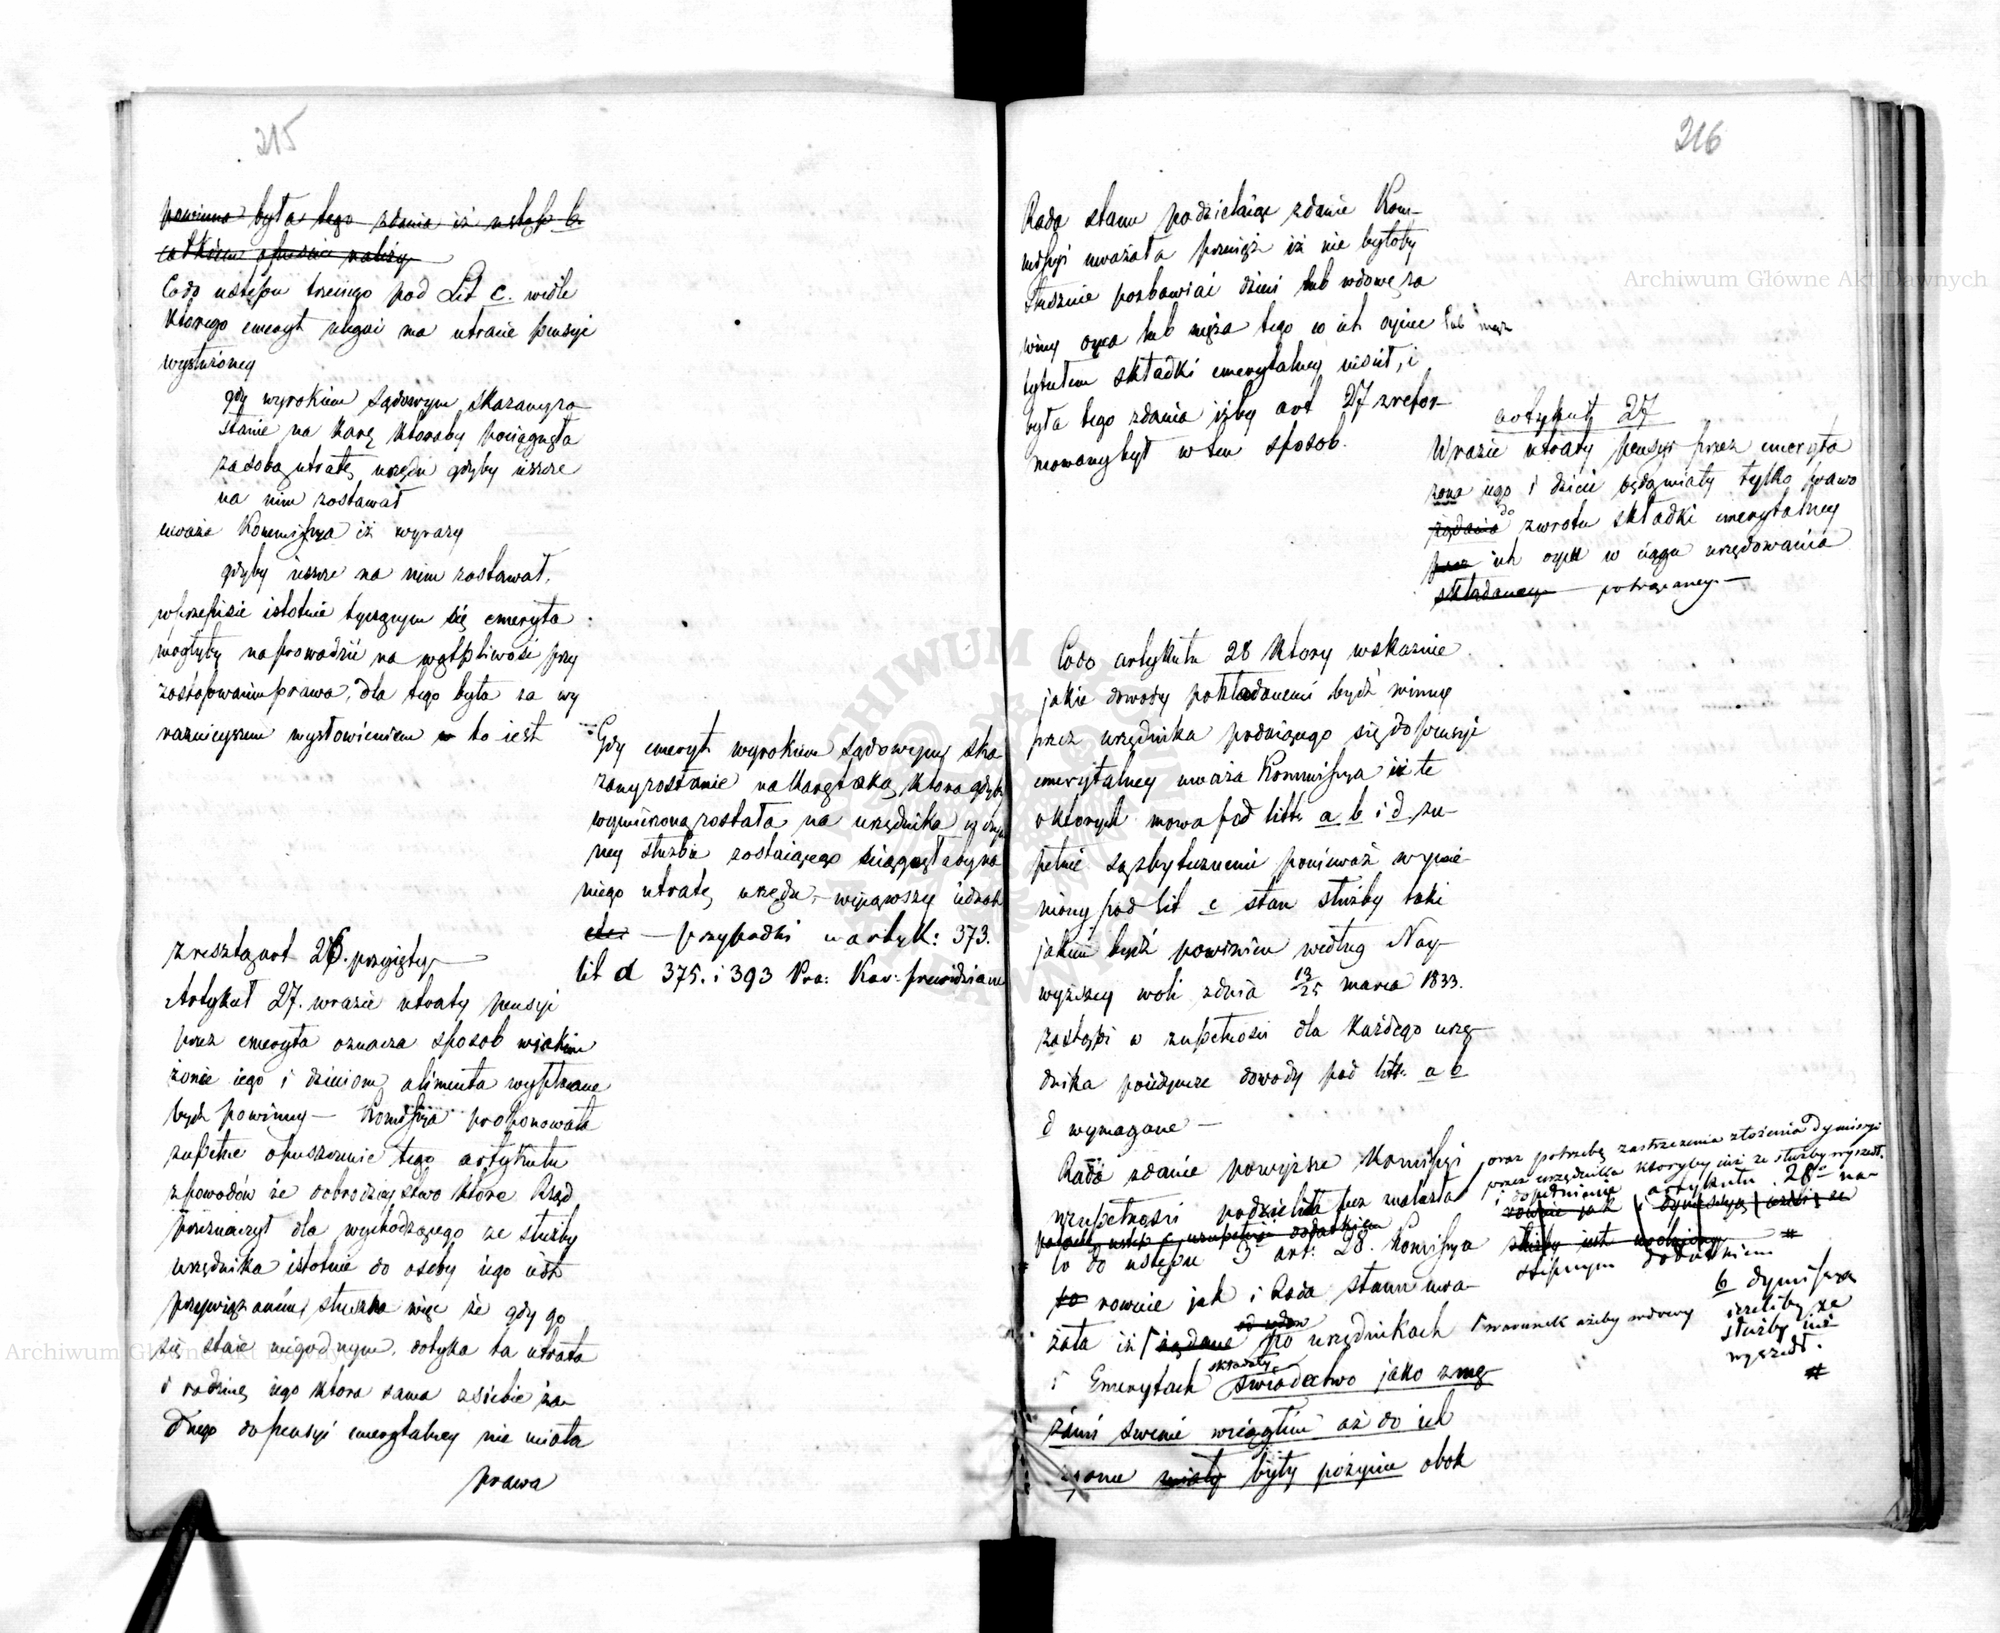 215
powinna była tego zdania iż ustęp b.
całkiem opuścić należy
Codo ustępu trzeciego pod Lit c. wedle
którego emeryt ulegać ma utracie pensyi
wysłużoney
gdy wyrokiem sądowym skazany zo-
stanie na karę któraby pociągnęła
za sobą utratę urzędu gdyby ieszcze
na nim zostawał
uważa Kommissya iż wyrazy
gdyby ieszcze na nim zostawał,
w przepisie istotnie tyczącym się emeryta
mogłyby naprowadzić na wątpliwość przy
zastosowaniu prawa, dla tego była za wy
raźnieyszem wysłowieniem to iest
Gdy emeryt wyrokiem sądowym ska
zany zostanie na karę taką, która gdyby
wymierzoną została na urzędnika w czyn
ney służbie zostaiącego ściągnęłaby na
niego utratę urzędu, wyiąwszy iednak
przypadki w artyk: 373.
lit d 375. i 393 Pra: Kar: przewidziane
Zresztą art 26. przyięty
Artykuł 27. w razie utraty pensyi
przez emeryta oznacza sposób w jakim
żonie iego i dzieciom alimenta wypłacane
bydź powinny — Komissya proponowała
zupełne opuszczenie tego artykułu
z powodów że dobrodzieystwo które Rząd
przeznaczył dla wychodzącego ze służby
urzędnika istotnie do osoby iego iest
przywiązanem, słuszna więc że gdy go
się staie niegodnym, dotyka ta utrata
i rodzinę iego która sama z siebie ża-
dnego do pensyi emerytalney nie miała
prawa
216
Rada stanu podzielaiąc zdanie Kom-
missyi uważała przecież iż nie byłoby
słusznie pozbawiać dzieci lub wdowę za
winy oyca lub męża tego co ich oyciec lub mąż
tytułem składki emerytalney uiścił, i
była tego zdania iżby art 27 zrefor-
mowany był w ten sposób.
artykuł 27
W razie utraty pensyi przez emeryta
żona iego i dzieci będą miały tylko prawo
żądania do zwrotu składki emerytalney
przez ich oyca w ciągu urzędowania
składaney potrącaney.
Codo artykułu 28 który wskazuie
jakie dowody pokładanemi bydź winny
przez urzędnika podaiącego się do pensyi
emerytalney uważa Kommissya iż te
o których mowa pod litt: a b i d zu-
pełnie są zbytecznemi ponieważ wymie-
niony pod lit c stan służby taki
jakim bydź powinien według Nay-
wyższey woli z dnia 13/25 marca 1833.
zastąpi w zupełności dla każdego urzę-
dnika poiedyncze dowody pod litt: a b
d wymagane —
Rada zdanie powyższe Komissyi
w zupełności podzieliła
oraz potrzebę zastrzeżenia złożenia dymissyi
przez urzędnika któryby iuż ze służby wyszedł.
i dopełnienie artykułu 28 na-
stępnym dodatkiem
b dymissya
ieżeliby ze
służby iuż
wyszedł.
#
Co do ustępu 3 art: 28. Komissya
równie jak i Rada stanu uwa-
żała iż żądane po urzędnikach
warunek ażeby wdowy
i Emerytach składały świadectwo jako z mę-
żami swemi w ciągłem aż do ich
zgonu miały były pożyciu obok